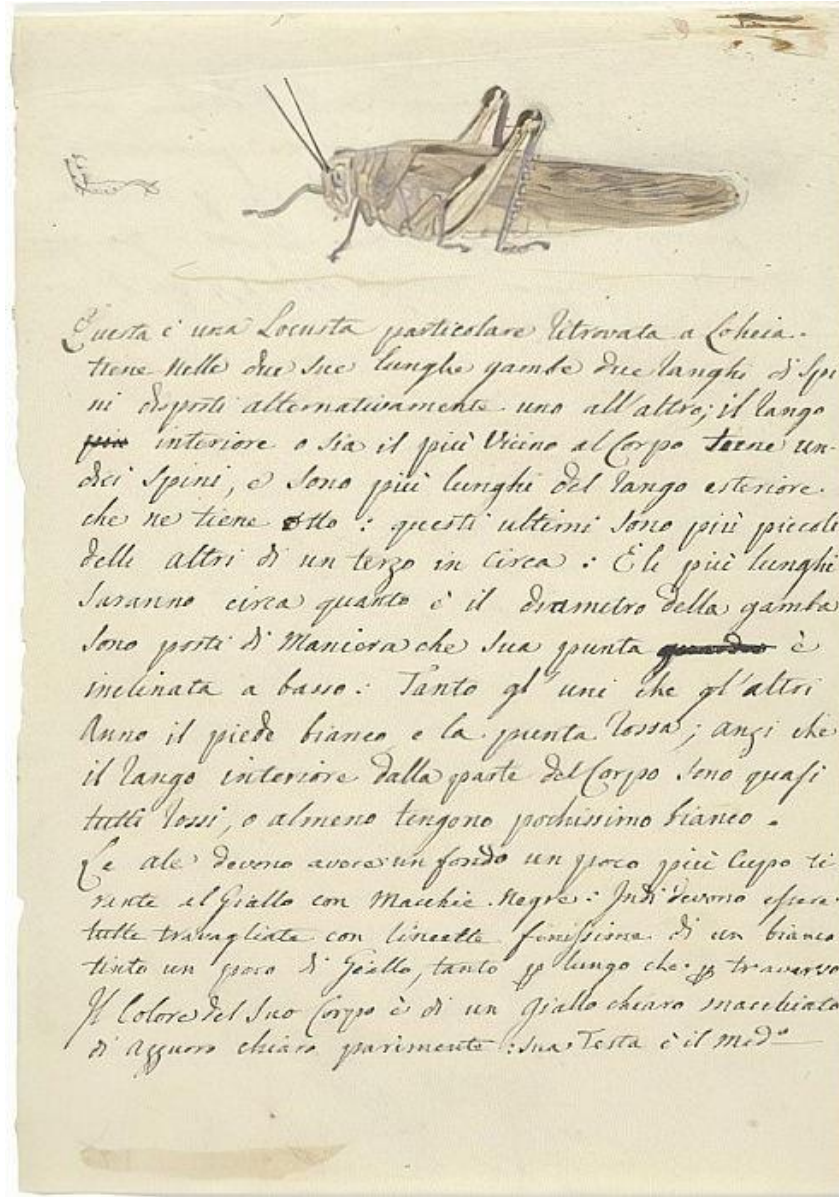 Questa è una Locusta particolare ritrovata a Loheia.
tiene nelle due sue lunghe gambe due ranghi di Spi
ni disposti alternativamente uno all'altro; il rango
più interiore o sia il più vicino al Corpo tiene un-
dici Spini, e sono più lunghi del rango esteriore
che ne tiene otto: questi ultimi sono più piccoli
delli altri di un terzo in circa: E li più lunghi
saranno circa quanto è il diametro della gamba
sono posti di Maniera che sua punta è
inclinata a basso: Tanto gl'uni che gl'altri
Anno il piede bianco e la punta rossa; anzi che
il rango interiore dalla parte del Corpo sono quasi
tutti rossi, o almeno tengono pochissimo bianco.
Le ale devono avere un fondo un poco più Cupo ti
rante al Giallo con Macchie Negre: Indi devono essere
tutte travagliate con lineette finissime di un bianco
tinto un poco di Giallo, tanto p lungo che p traverso
Il Colore del suo Corpo è di un Giallo chiaro macchiato
di Azzuoro chiaro parimente: sua Testa è il medº